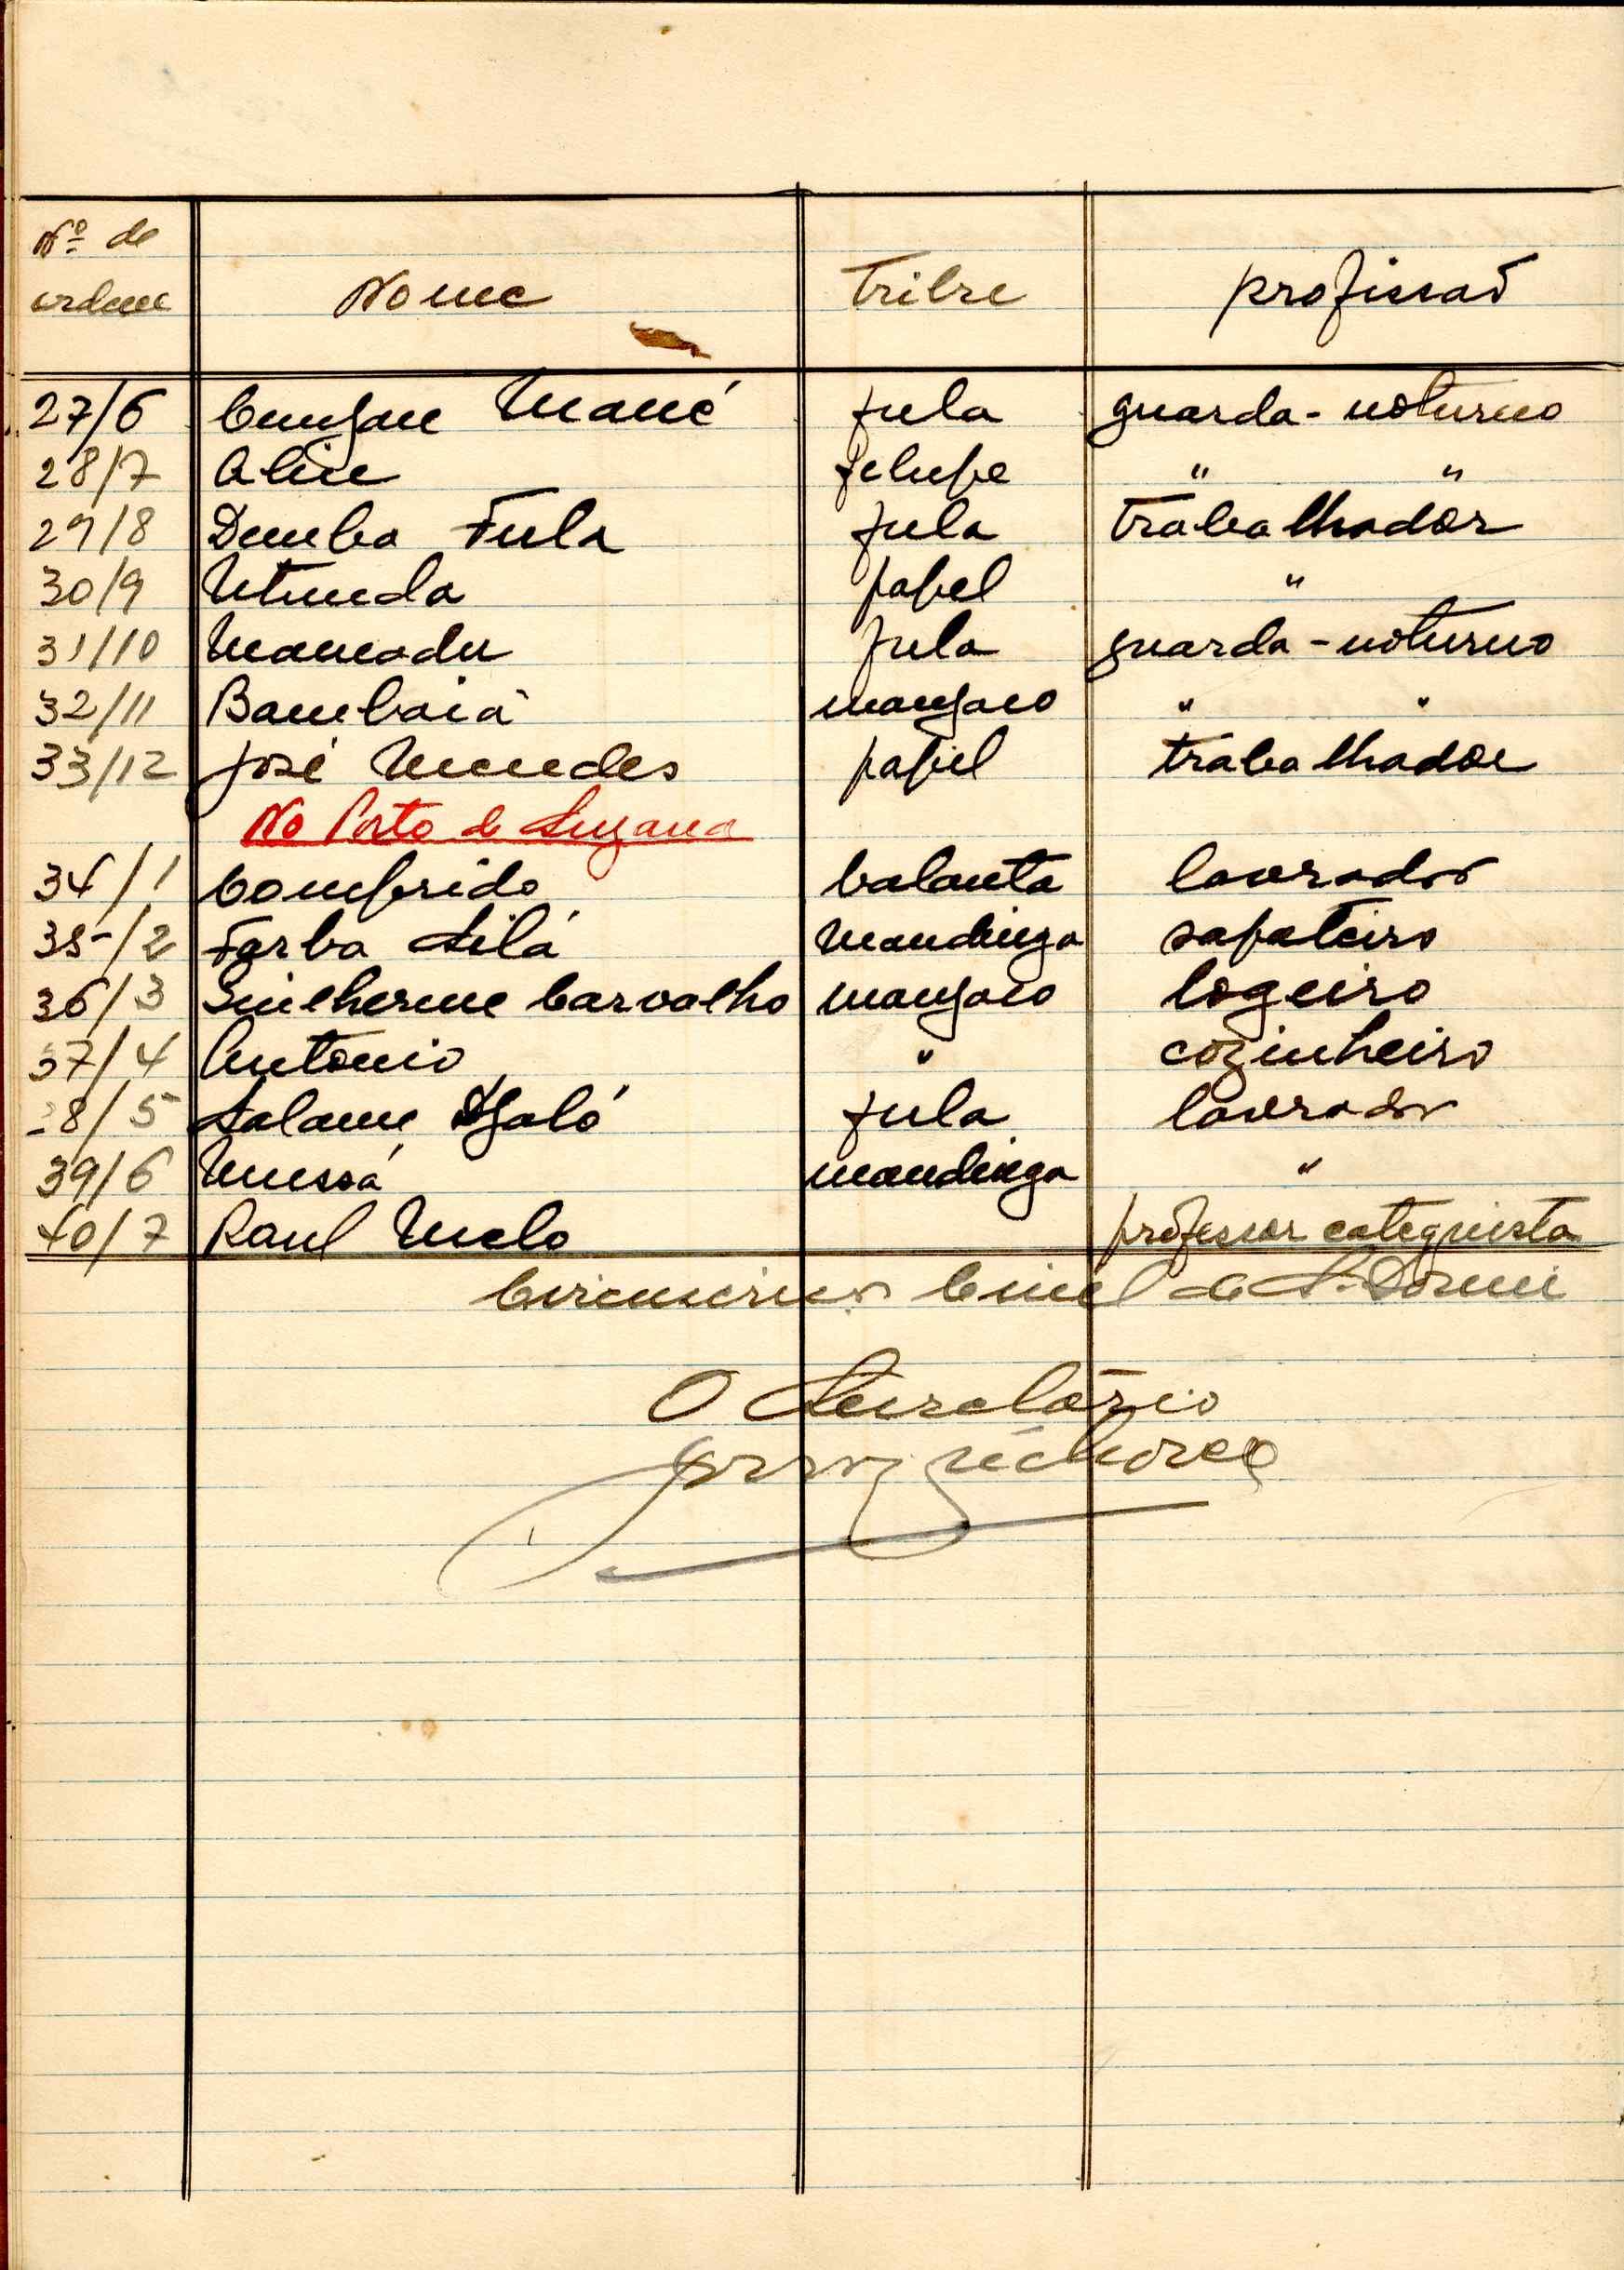 Nº de ordem Nome Tribu profissão
27/6 Cunfam Mané fula guarda-noturno
28/7 Aliu felupe " "
29/8 Demba Fula fula trabalhador
30/9 papel "
31/10 Mamadu fula guarda-noturno
32/11 Bambaiá manjaco " "
33/12 José Mendes papel trabalhador
No Porto de Suzana
34/1 Comprido balanta lavrador
35/2 Farba Silá Mandinga sapateiro
36/3 Guilherme Carvalho manjaco logeiro
37/4 Antonio " cozinheiro
38/5 Salame Djaló fula lavrador
39/6 Mussá mandinga "
40/7 Raul Melo professor catequista
Circunscrição Civil de S. Domi
O Secretário